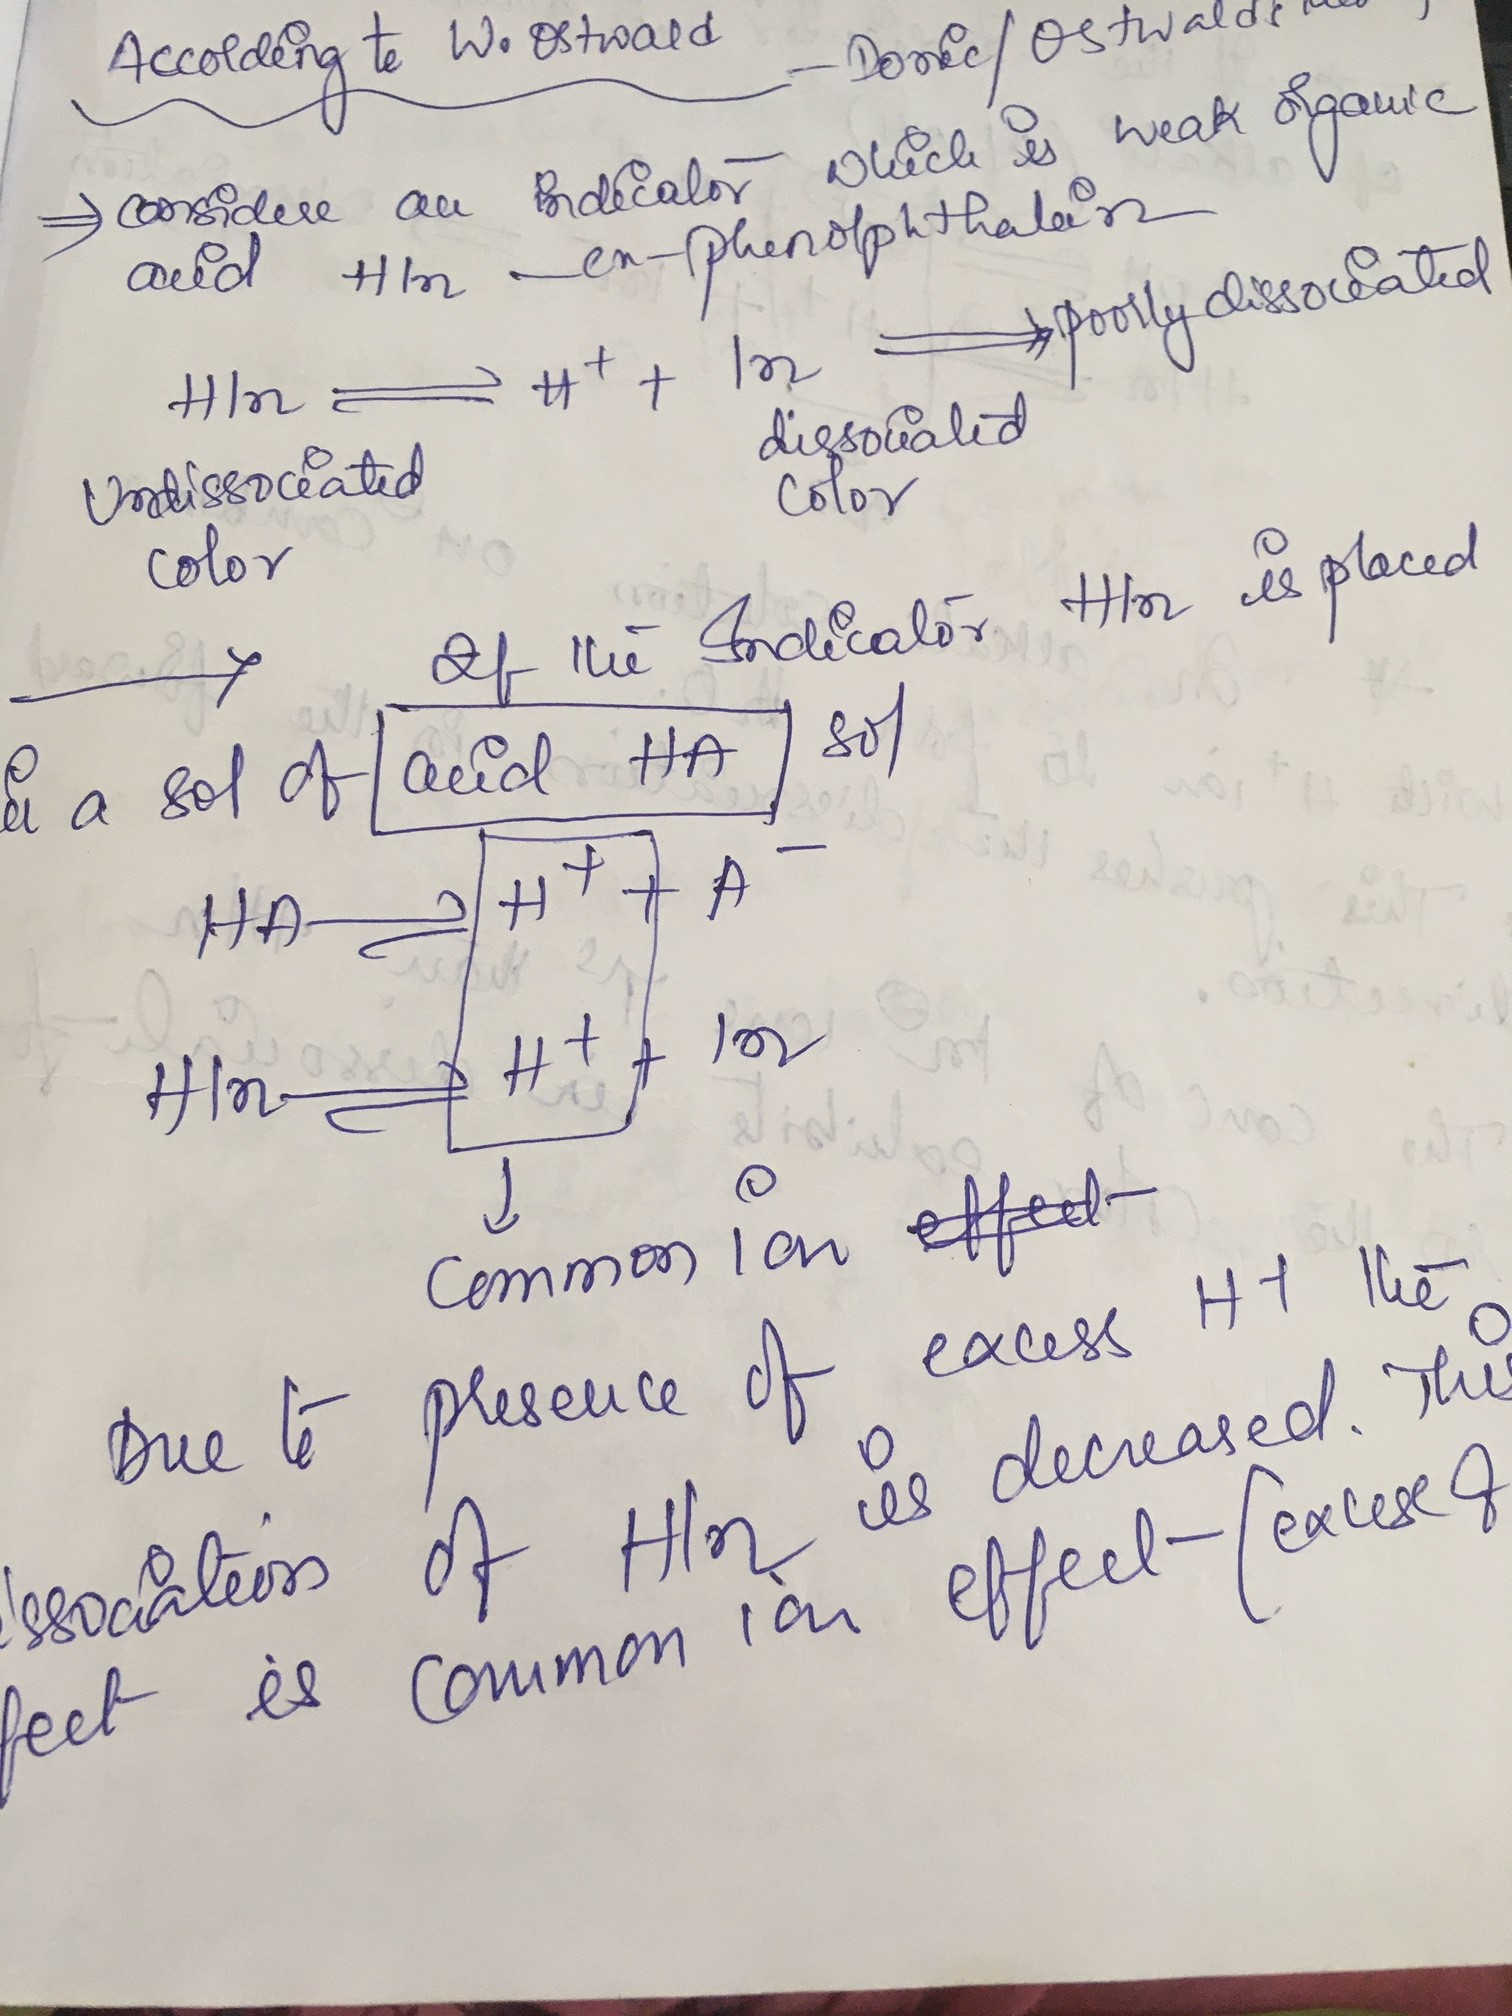 According to W. Ostwald - Donic/Ostwalds
⇒ considere an Indicator which is weak organic
acid HIn - ex- phenolphthalein
HIn ⇌ H⁺ + In ⇒ poorly dissociated
Undissociated dissociated
color color
→ If the Indicator HIn is placed
in a sol of acid HA sol
HA ⇌ H⁺ + A⁻
HIn ⇌ H⁺ + In
↓
Common ion effect
Due to presence of excess H+ the
issociation of HIn is decreased. This
fect is common ion effect (excess of